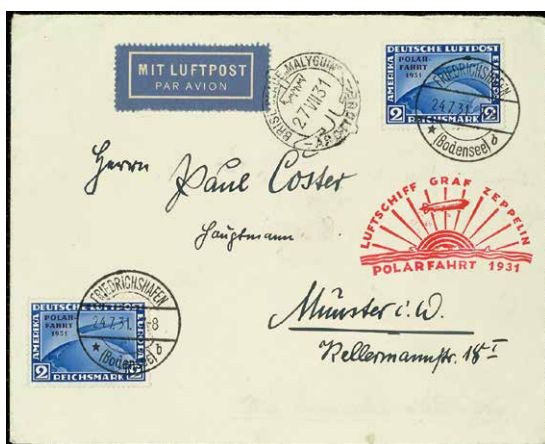 MIT LUFTPOST
PAR AVION
27 VII 31
DEUTSCHE LUFTPOST
AMERIKA
EUROPA
POLAR-
FAHRT
1931
2 REICHSMARK 2
FRIEDRICHSHAFEN
24.7.31.
(Bodensee) b
Herrn Paul Coster
Hauptmann
LUFTSCHIFF GRAF ZEPPELIN
POLARFAHRT 1931
Münster i. W.
Kellermannstr. 18 I
DEUTSCHE LUFTPOST
AMERIKA
EUROPA
POLAR-
FAHRT
1931
2 REICHSMARK 2
FRIEDRICHSHAFEN
24.7.31. -8
(Bodensee) b